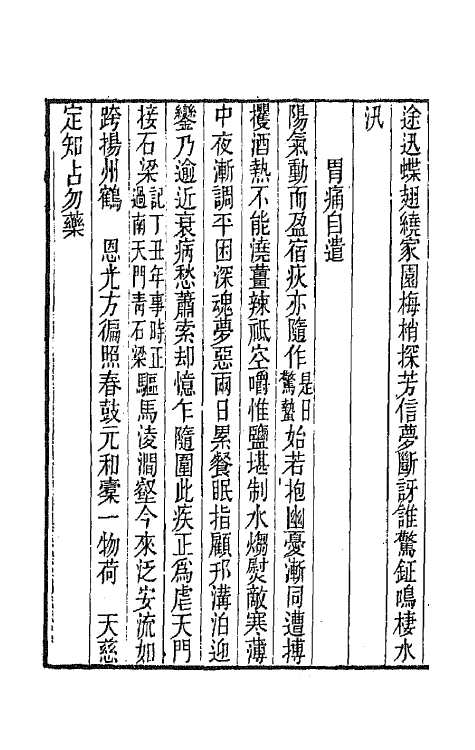 途迅蝶翅繞家園梅梢探芳信夢斷訝誰驚鉦鳴棲水
汛
胃痛自遣
陽氣動而盈宿疾亦隨作是日驚蟄始若抱幽憂漸同遭搏
攫酒熱不能澆薑辣祗空嚼惟鹽堪制水熨敵寒薄
中夜漸調平困深魂夢惡兩日累餐眠指顧邗溝泊迎
鑾乃逾近衰病愁蕭索却憶乍隨圍此疾正爲虐天門
接石梁記丁丑年事時正過南天門靑石梁驅馬凌澗壑今來泛安流如
跨揚州鶴 恩光方徧照春鼓元和槖一物荷 天慈
定知占勿藥